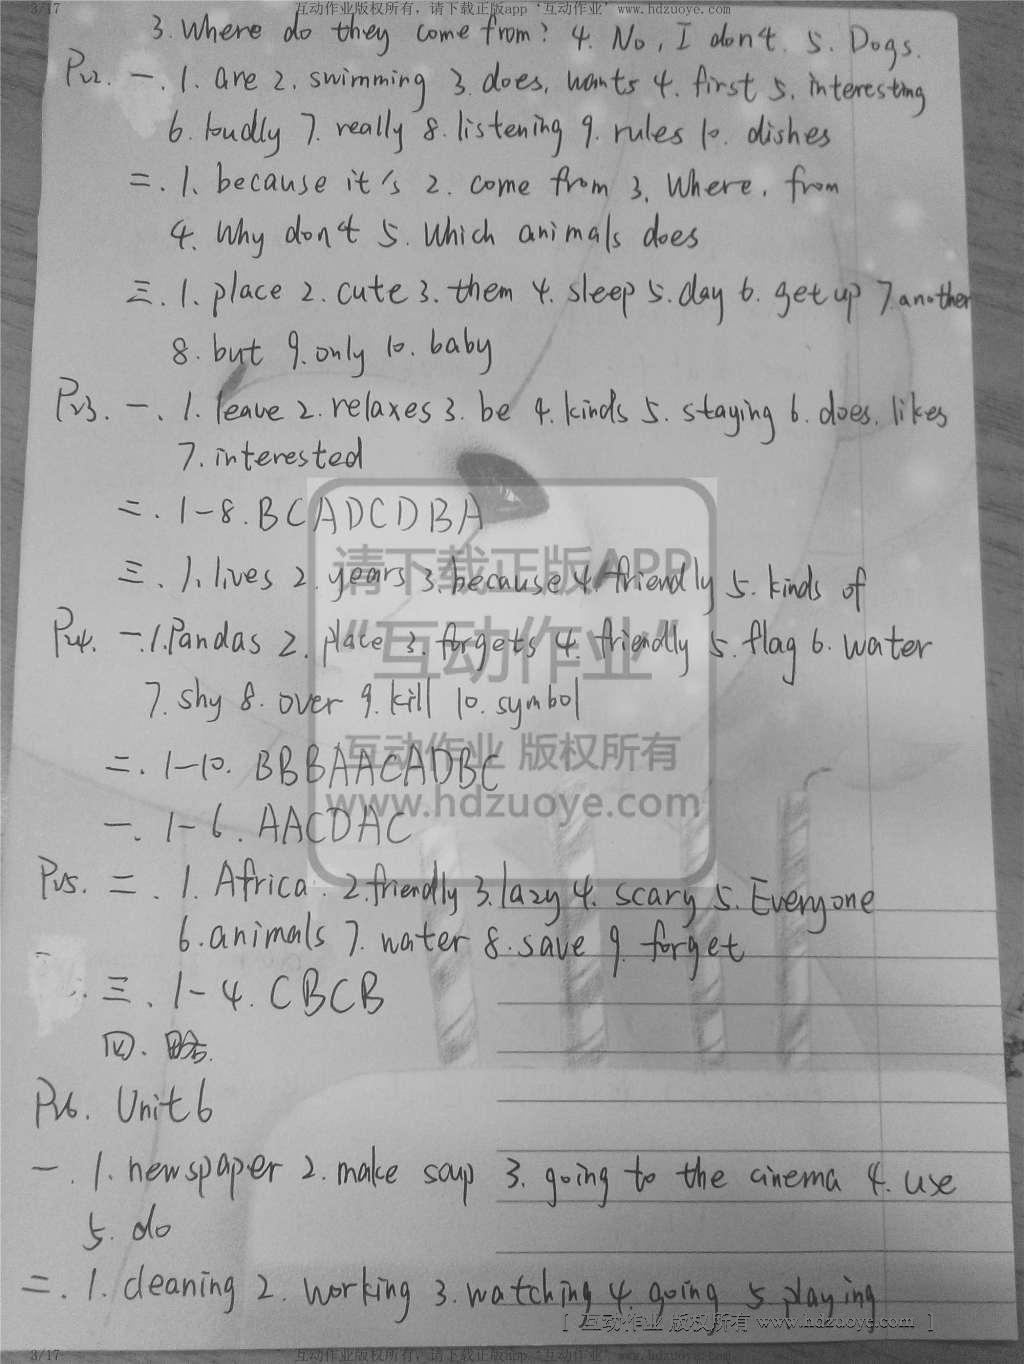 3/17 互动作业版权所有，请下载正版app‘互动作业’www.hdzuoye.com 3/17
3. Where do they come from? 4. No, I don't. 5. Dogs.
P22. 一. 1. are 2. swimming 3. does, wants 4. first 5. interesting
6. loudly 7. really 8. listening 9. rules 10. dishes
二. 1. because it's 2. come from 3. Where, from
4. Why don't 5. Which animals does
三. 1. place 2. cute 3. them 4. sleep 5. day 6. get up 7. another
8. but 9. only 10. baby
P23. 一. 1. leave 2. relaxes 3. be 4. kinds 5. staying 6. does, likes
7. interested
二. 1-8. BCADCDBA
请下载正版APP
三. 1. lives 2. years 3. because 4. friendly 5. kinds of
P24. 一. 1. Pandas 2. place 3. forgets 4. friendly 5. flag 6. water
“互动作业”
7. shy 8. over 9. kill 10. symbol
互动作业 版权所有
二. 1-10. BBBAACADBC
www.hdzuoye.com
一. 1-6. AACDAC
P25. 二. 1. Africa. 2. friendly 3. lazy 4. scary 5. Everyone
6. animals 7. water 8. save 9. forget
三. 1-4. CBCB
四. 略.
P26. Unit 6
一. 1. newspaper 2. make soup 3. going to the cinema 4. use
5. do
二. 1. cleaning 2. working 3. watching 4. going 5. playing
[ 互动作业 版权所有 www.hdzuoye.com ]
3/17 互动作业版权所有，请下载正版app‘互动作业’www.hdzuoye.com 3/17